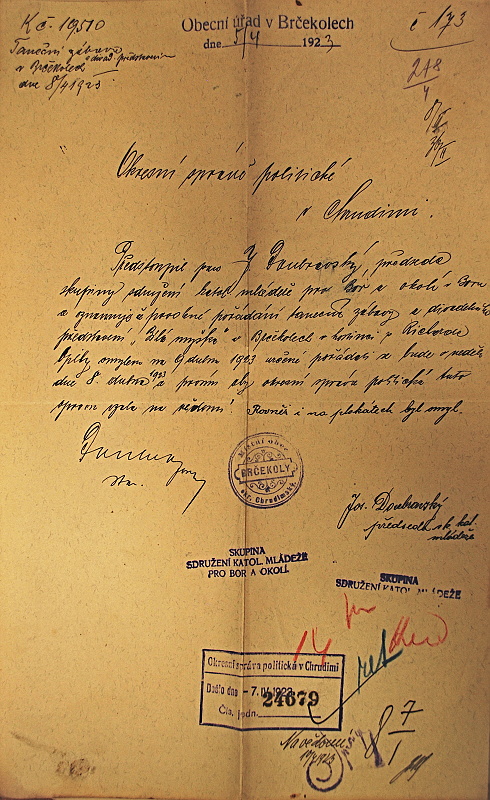 K č. 19510
Taneční zábava
a divad. představení
v Brčekolech
dne 8/4 1923
Obecní úřad v Brčekolech
dne 5/4 1923
č 173
218
4
Okresní správě politické
v Chrudimi.
Předstoupil pan J. Doubravský, předseda
skupiny sdružení katol. mládeže pro Bor a okolí v Boru
a oznamuje že povolené pořádání taneční zábavy a divadelního
představení „Bílá myška" v Brčekolech v hostinci p. Richarda
omylem na 9 dubna 1923 určené pořádati se bude v neděli
dne 8. dubna 1923 a prosí aby okresní správa politická tuto
opravu vzala na vědomí. Rovněž i na plakátech byl omyl.
Místní obec
BRČEKOLY
okr. Chrudimský.
Jos. Doubravský
předseda sk. kat.
mládeže
SKUPINA
SDRUŽENÍ KATOL. MLÁDEŽE
PRO BOR A OKOLÍ.
SKUPINA
SDRUŽENÍ KATOL. MLÁDEŽE
14
Okresní správa politická v Chrudimi
Došlo dne - 7. IV. 1923
24679
Čís. jedn.
Na vědomí